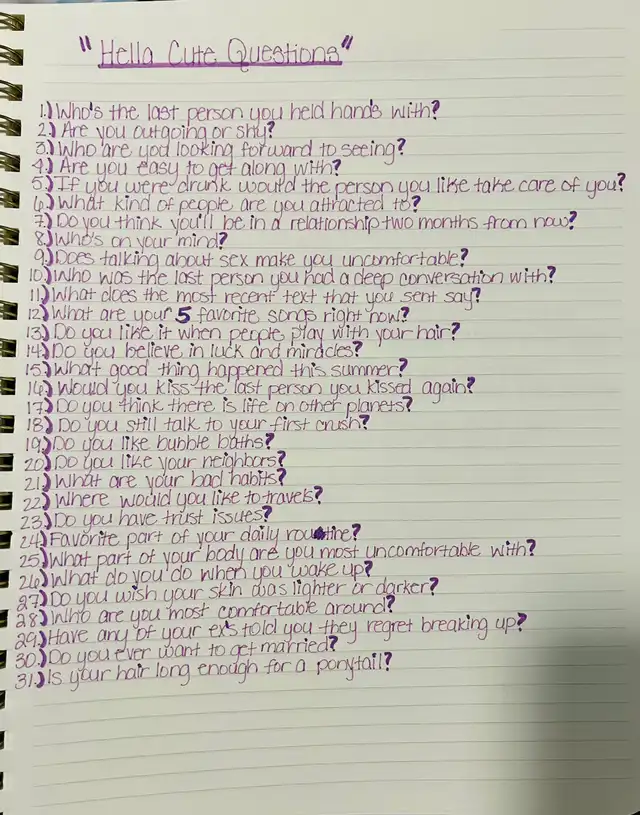 "Hella Cute Questions"
1.) Who's the last person you held hands with?
2.) Are you outgoing or shy?
3.) Who are you looking forward to seeing?
4.) Are you easy to get along with?
5.) If you were drunk would the person you like take care of you?
6.) What kind of people are you attracted to?
7.) Do you think you'll be in a relationship two months from now?
8.) Who's on your mind?
9.) Does talking about sex make you uncomfortable?
10.) Who was the last person you had a deep conversation with?
11.) What does the most recent text that you sent say?
12.) What are your 5 favorite songs right now?
13.) Do you like it when people play with your hair?
14.) Do you believe in luck and miracles?
15.) What good thing happened this summer?
16.) Would you kiss the last person you kissed again?
17.) Do you think there is life on other planets?
18.) Do you still talk to your first crush?
19.) Do you like bubble baths?
20.) Do you like your neighbors?
21.) What are your bad habits?
22.) Where would you like to travels?
23.) Do you have trust issues?
24.) Favorite part of your daily routine?
25.) What part of your body are you most uncomfortable with?
26.) What do you do when you wake up?
27.) Do you wish your skin was lighter or darker?
28.) Who are you most comfortable around?
29.) Have any of your ex's told you they regret breaking up?
30.) Do you ever want to get married?
31.) Is your hair long enough for a ponytail?